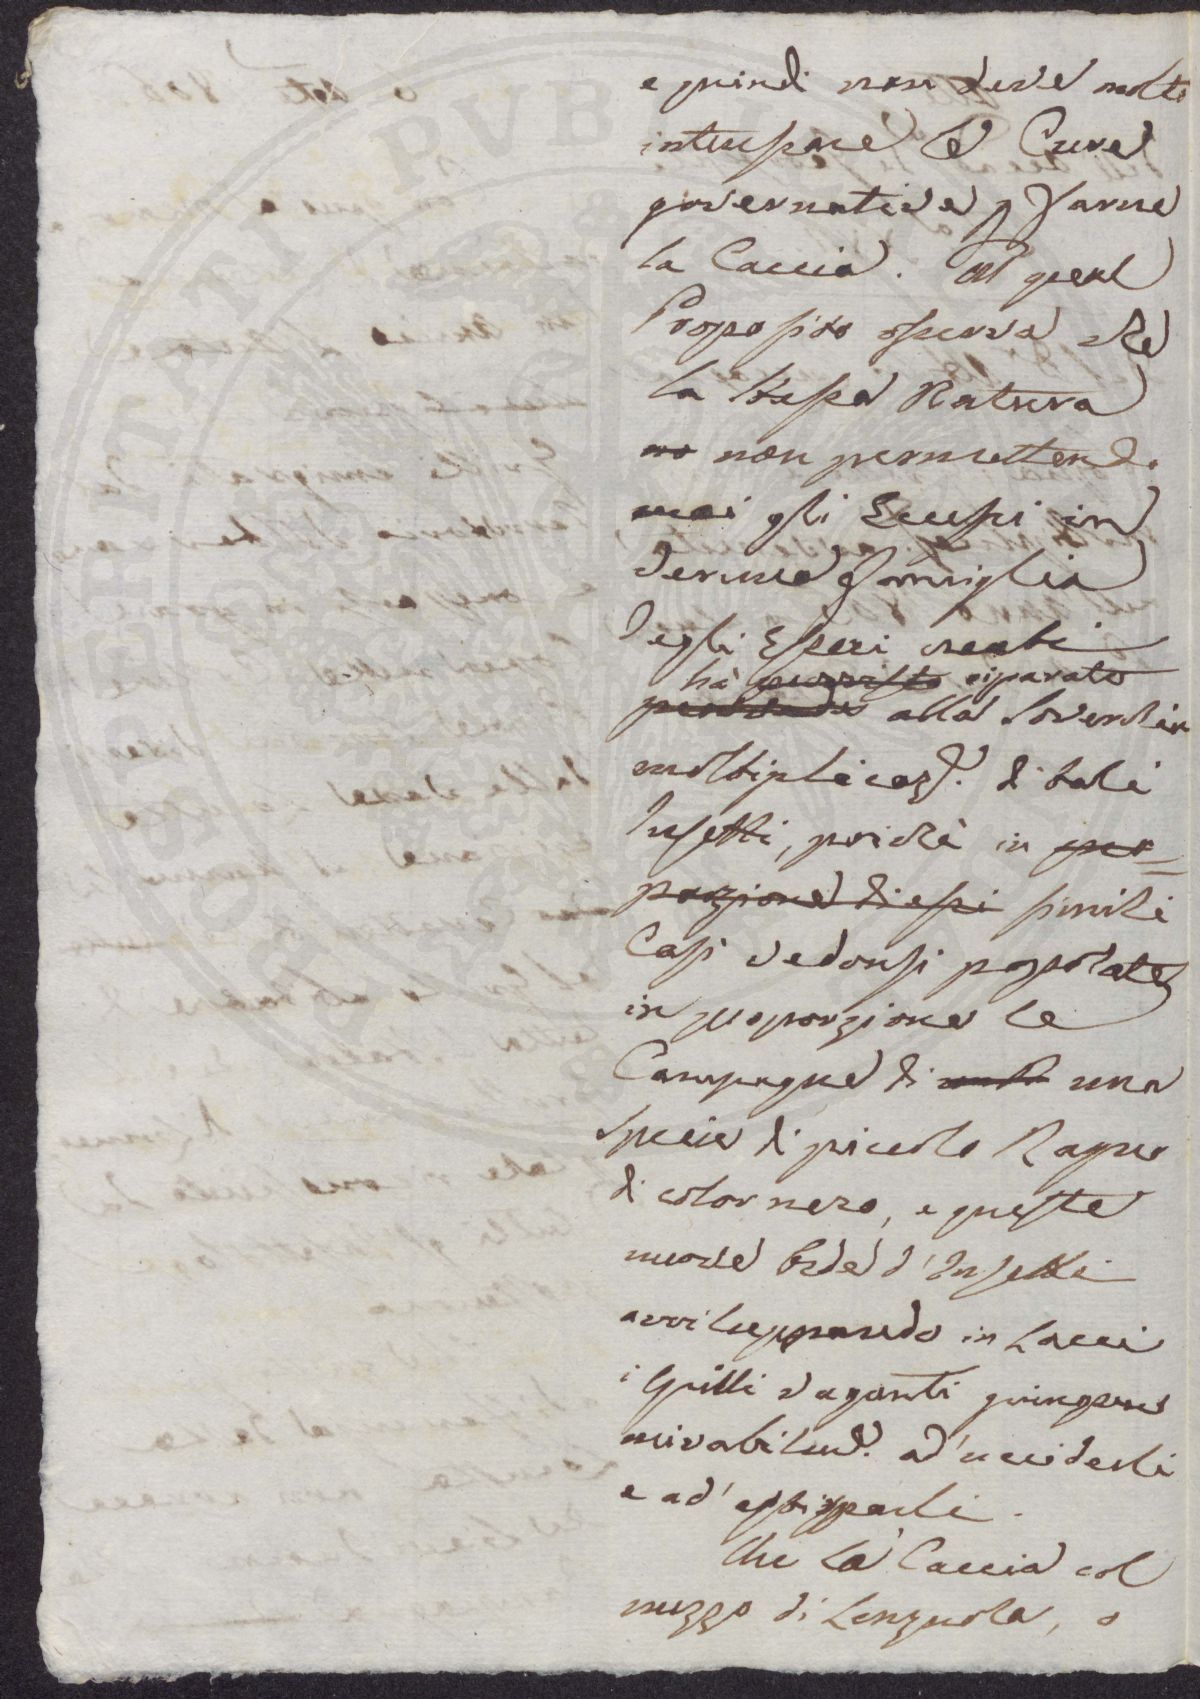 e quindi non deve molto
interessare le Cure
governative p farne
la Caccia. Al qual
Proposito osserva che
la stessa Natura
no non permettendo
mai gli Eccessi in
veruna famiglia
degli Esseri creati
hà provvisto riparato
alla soverchia
moltiplicaz.e di tali
Insetti, poichè in pro=
porzione di essi simili
Casi vedonsi popolate
in proporzione le
Campagne di una
specie di piccolo Ragno
di color nero, e queste
nuove orde d'Insetti
avviluppando in Lacci
i Grilli vaganti giungono
mirabilm.e ad'ucciderli
e ad'estirparli.
Che la Caccia col
mezzo di Lenzuola, o